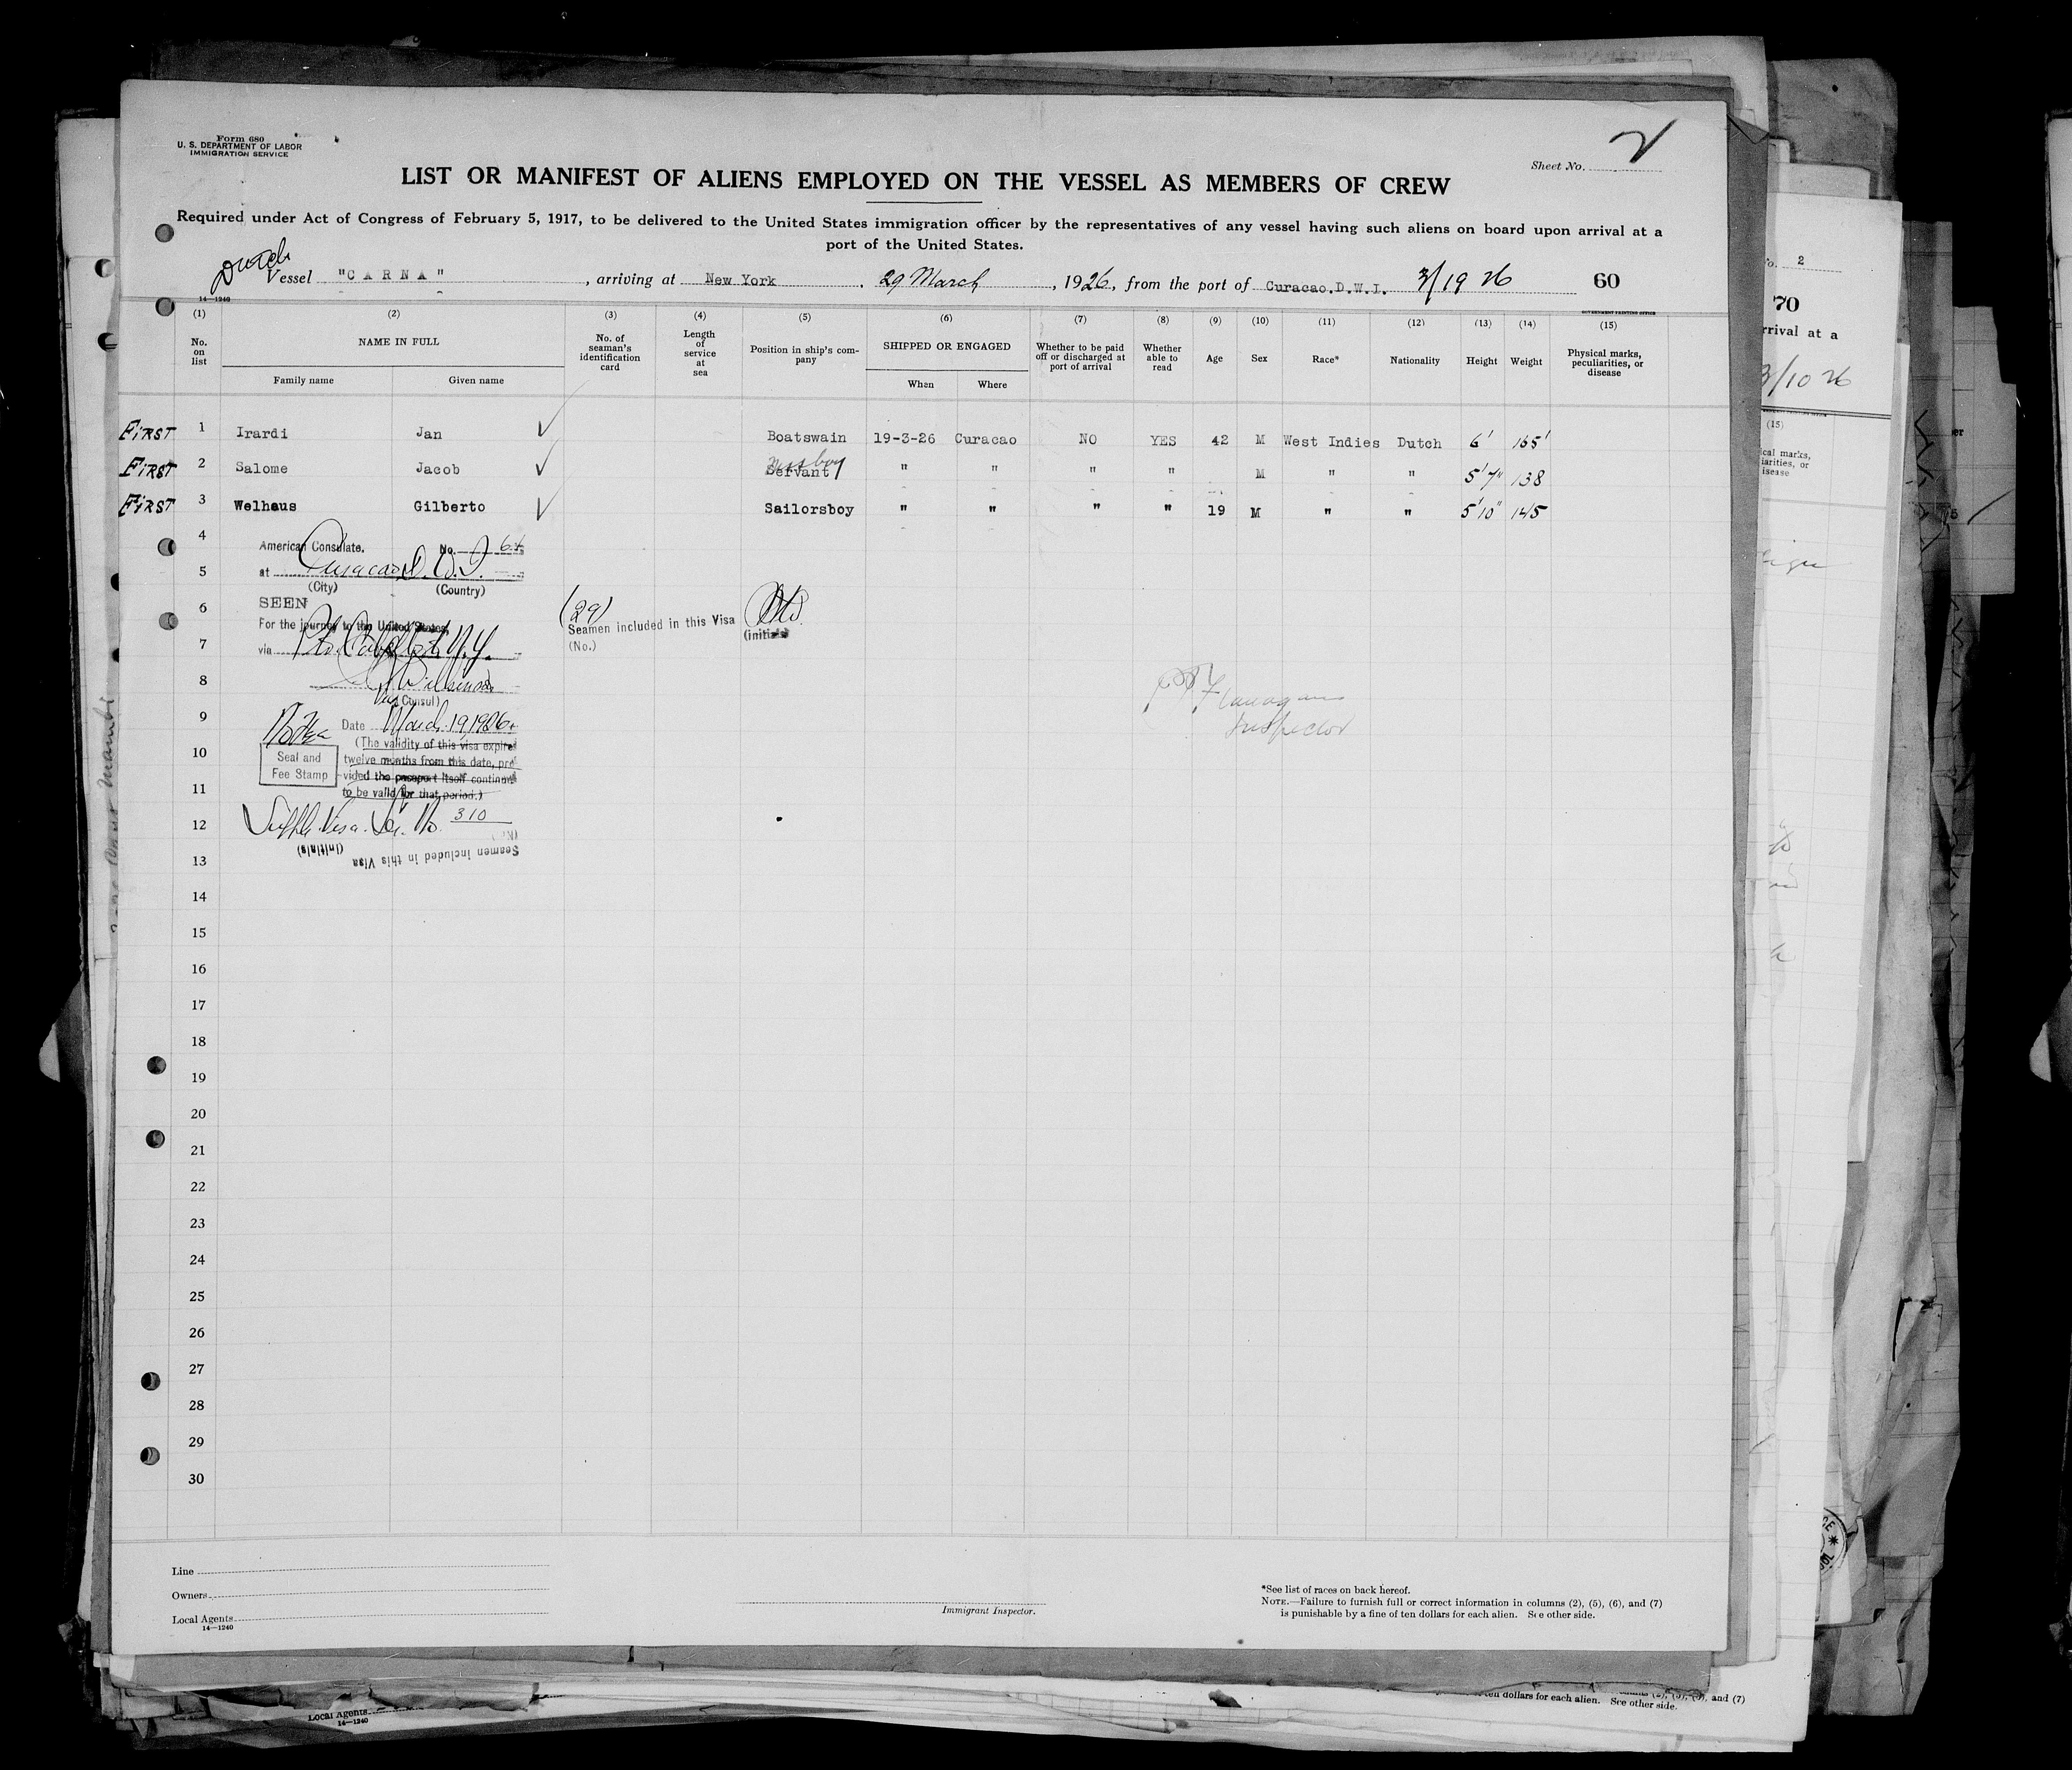 Form 680
U. S. DEPARTMENT OF LABOR
IMMIGRATION SERVICE
Sheet No. 2
LIST OR MANIFEST OF ALIENS EMPLOYED ON THE VESSEL AS MEMBERS OF CREW
Required under Act of Congress of February 5, 1917, to be delivered to the United States immigration officer by the representatives of any vessel having such aliens on board upon arrival at a
port of the United States.
Dutch
Vessel "CARNA", arriving at New York, 29 March, 1926, from the port of Curacao.D.W.I. 3/19 26 60
14—1240
GOVERNMENT PRINTING OFFICE
(1) (2) (3) (4) (5) (6) (7) (8) (9) (10) (11) (12) (13) (14) (15)
No. on list NAME IN FULL Family name Given name No. of seaman's identification card Length of service at sea Position in ship's company SHIPPED OR ENGAGED When Where Whether to be paid off or discharged at port of arrival Whether able to read Age Sex Race* Nationality Height Weight Physical marks, peculiarities, or disease
FIRST 1 Irardi Jan ✓ Boatswain 19-3-26 Curacao NO YES 42 M West Indies Dutch 6' 165'
FIRST 2 Salome Jacob ✓ messboy Servant " " " " M " " 5'7" 138
FIRST 3 Welhaus Gilberto ✓ Sailorsboy " " " " 19 M " " 5'10" 145
4
American Consulate. No. 64
5
at Curacao D.W.I.
(City) (Country)
6
SEEN
For the journey to the United States,
(29)
Seamen included in this Visa
(No.)
(initials)
7
via N.Y.
8
(Vice Consul)
Flanagan
Inspector
9
Date March 19 1926
10
(The validity of this visa expires
twelve months from this date, pro-
vided the passport itself continues
to be valid for that period.)
Seal and
Fee Stamp
No Fee
11
12
Visa No. 310
(No.)
13
Seamen included in this Visa
(initials)
14
15
16
17
18
19
20
21
22
23
24
25
26
27
28
29
30
Line
Owners
Local Agents
14—1240
Immigrant Inspector.
*See list of races on back hereof.
NOTE.—Failure to furnish full or correct information in columns (2), (5), (6), and (7)
is punishable by a fine of ten dollars for each alien. See other side.
2
70
rrival at a
3/10 26
(15)
ical marks,
iarities, or
isease
Local Agents
14—1240
ten dollars for each alien. See other side.
and (7)